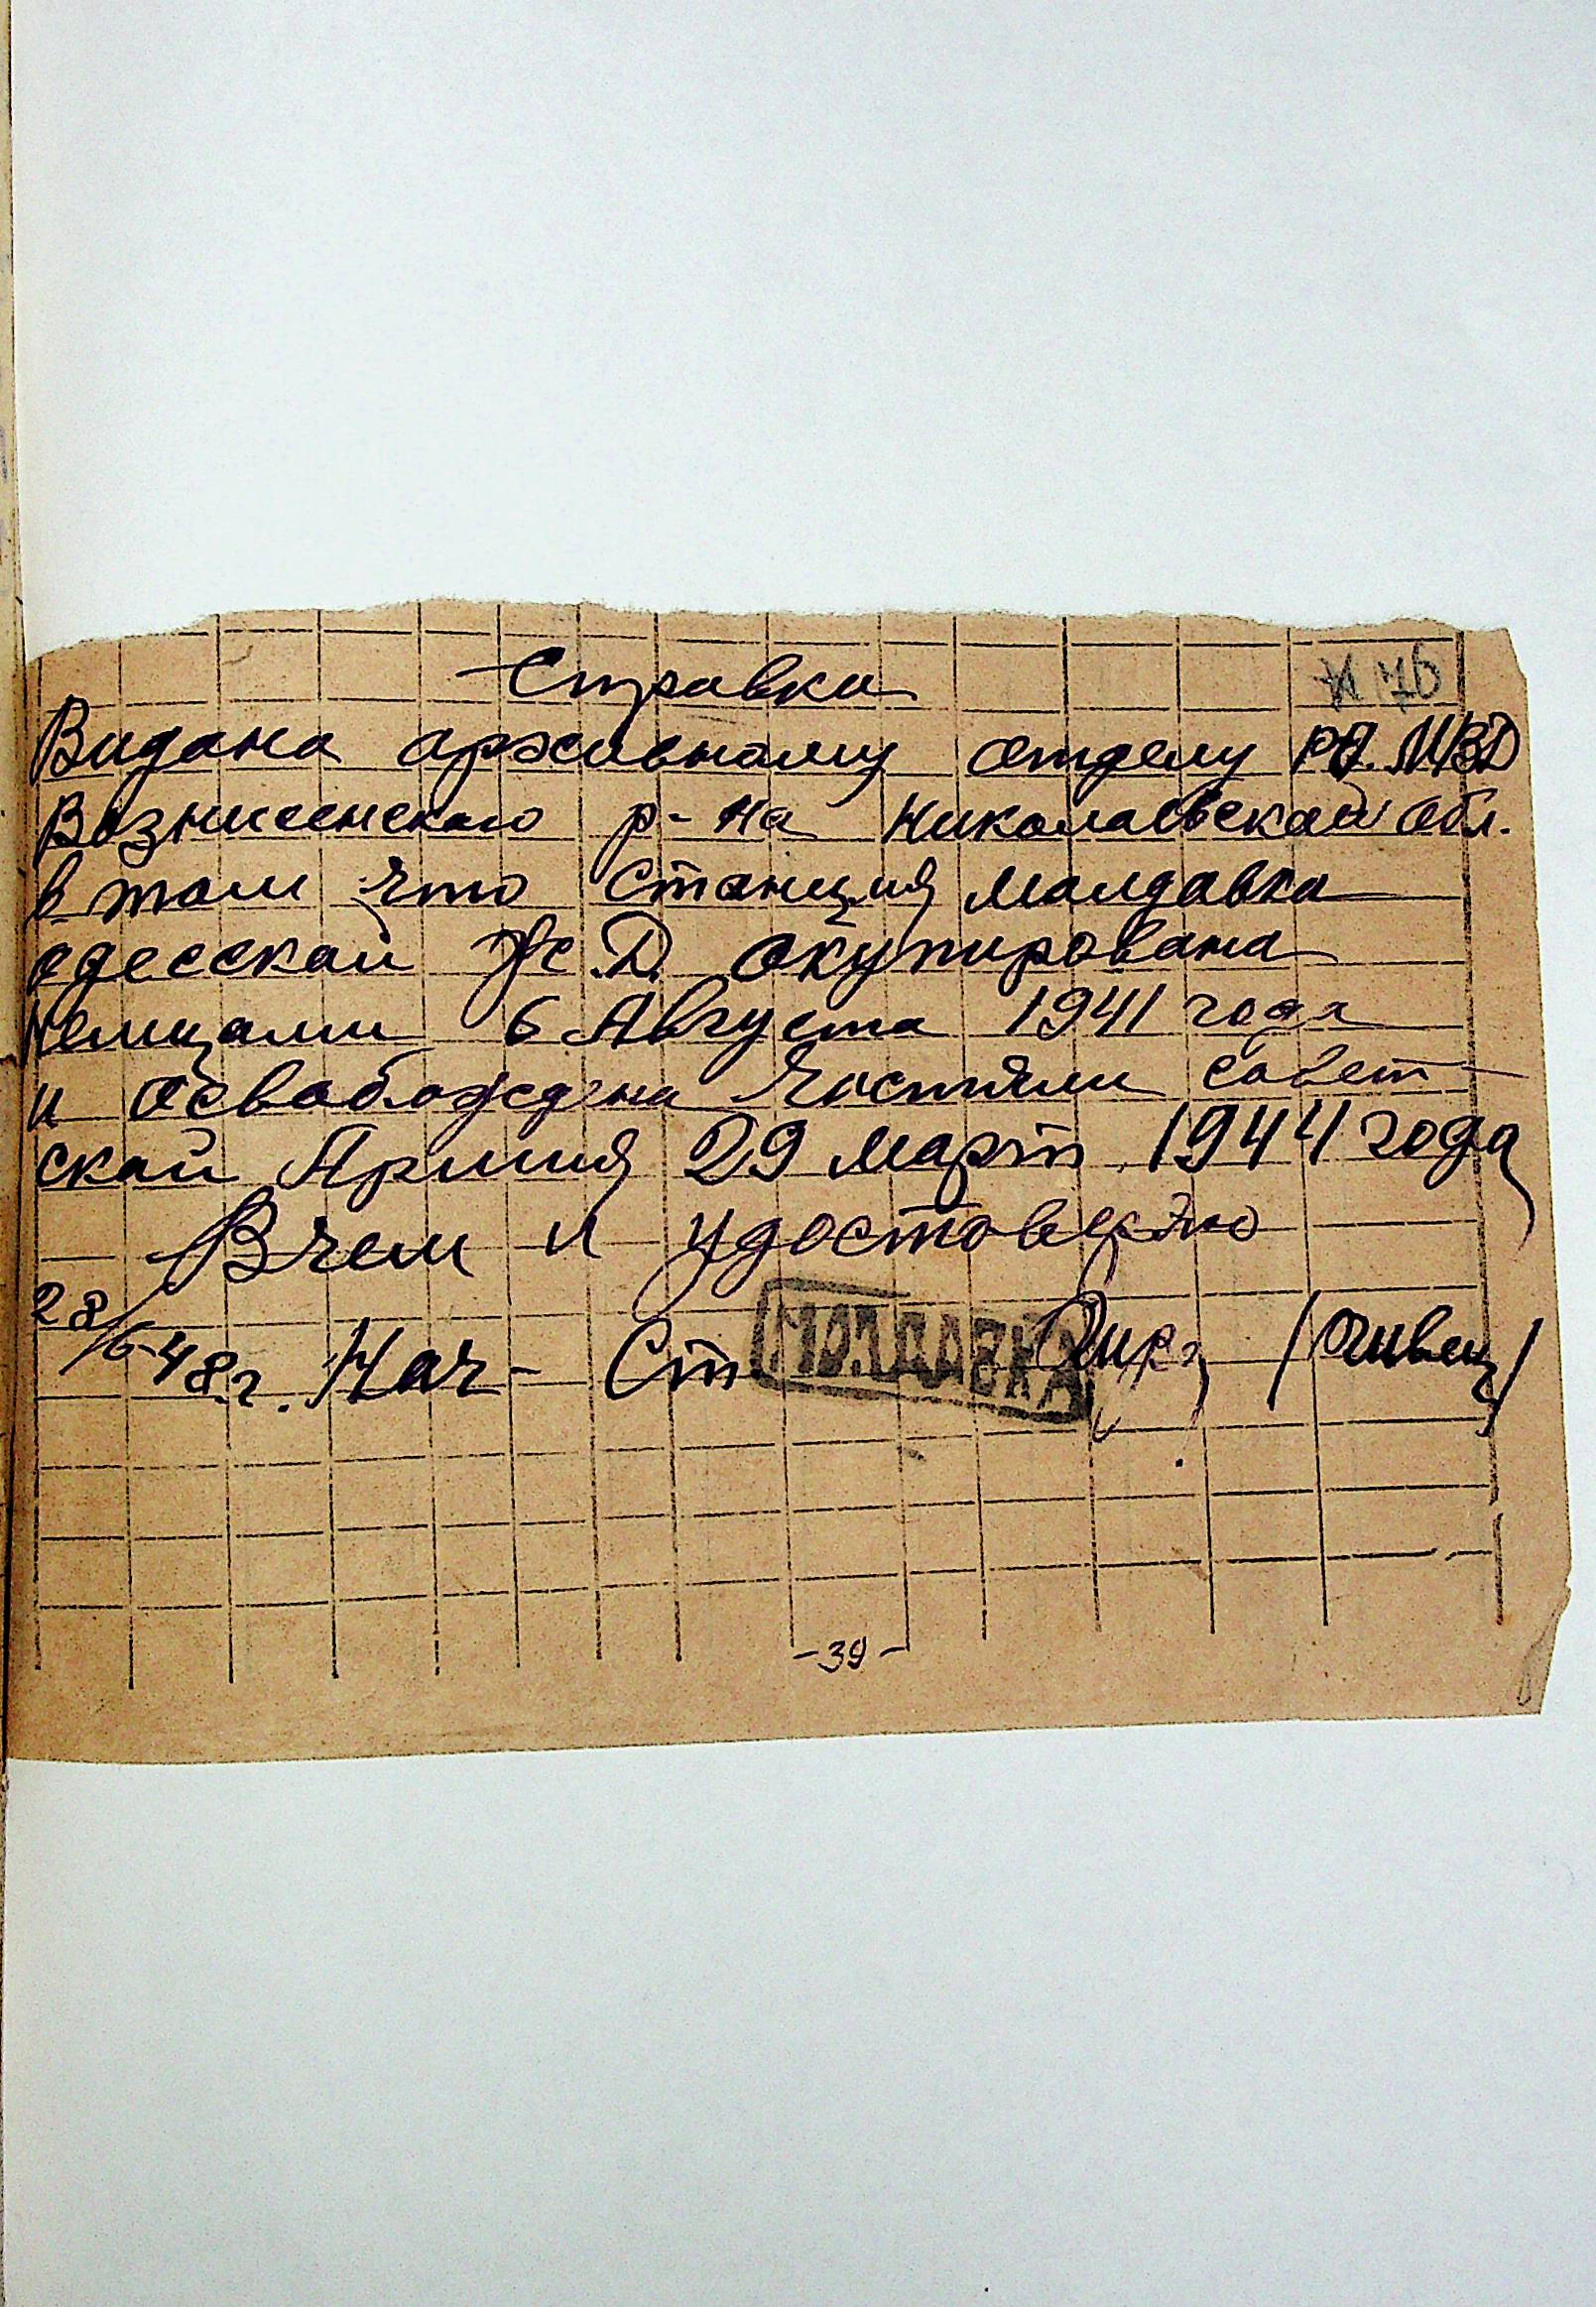 Справка
76
Видана архивному отделу РО. МВД
Вознисенского р-на Николаевской обл.
в том что Станция Молдавка
Одесской Ж.Д. Окупирована
Немцами 6 Августа 1941 года
и Освобождена Частями Совет-
ской Армия 29 март 1944 года
В чем и удостоверяю
28/6-48г. Нач- Ст МОЛДАВКА
-39-